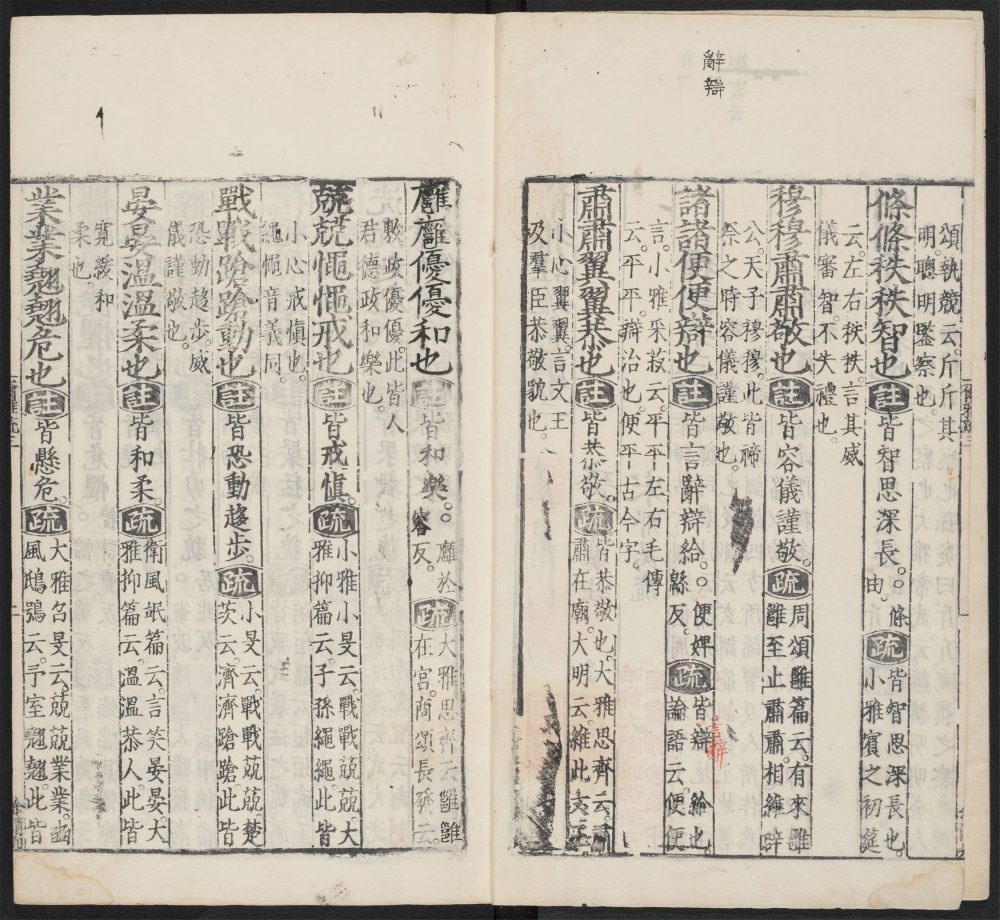 辭
辯
頌執競云。斤斤其
明聰明鑒察也。
條條秩秩智也註皆智思深長。條
由
疏皆智思深長也。
小雅賓之初筵
云。左右秩秩。言其威
儀審智不失禮也。
穆穆肅肅敬也註皆容儀謹敬。疏周頌雝篇云。有來雝
雝至止肅肅。相維辟
公。天子穆穆。此皆禘
祭之時容儀謹敬也。
諸諸便便辯也註皆言辭辯給。便婢
緜反。
疏皆辯給也。
論語云。便便
言。小雅采菽云。平平左右毛傳
云。平平。辯治也。便平古今字。
肅肅翼翼恭也註皆恭敬。疏皆恭敬也。大雅思齊云。肅
肅在廟大明云。維此文王
小心翼翼。言文王
及羣臣恭敬貌也。
廱廱優優和也註皆和樂。廱於
容反。
疏大雅思齊云雝雝
在宮。商頌長發云。
敷政優優。此皆人
君德政和樂也。
兢兢憴憴戒也註皆戒愼。疏小雅小旻云。戰戰兢兢。大
雅抑篇云。子孫繩繩。此皆
小心戒愼也。
繩憴音義同。
戰戰蹌蹌動也註皆恐動趨步。疏小旻云。戰戰兢兢。楚
茨云。濟濟蹌蹌此皆
恐動趨步。威
儀謹敬也。
晏晏溫溫柔也註皆和柔。疏衛風氓篇云。言笑晏晏。大
雅抑篇云。溫溫恭人。此皆
寬緩和
柔也。
業業翹翹危也註皆懸危。疏大雅召旻云。兢兢業業。豳
風鴟鴞云。予室翹翹。此皆